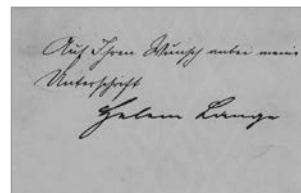 Auf Ihren Wunsch anbei meine
Unterschrift
Helene Lange